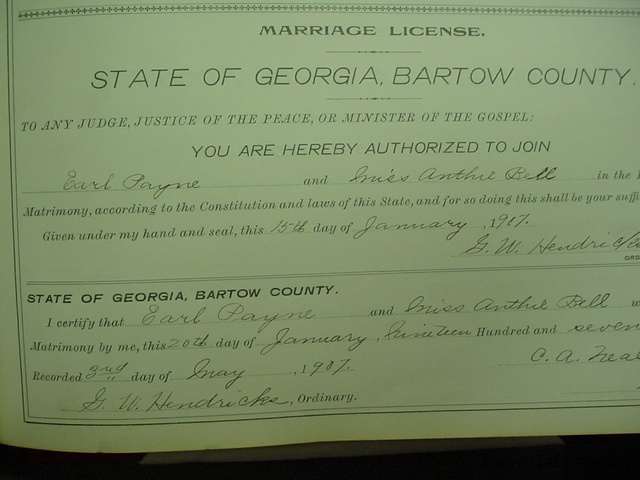 MARRIAGE LICENSE.
STATE OF GEORGIA, BARTOW COUNTY.
TO ANY JUDGE, JUSTICE OF THE PEACE, OR MINISTER OF THE GOSPEL:
YOU ARE HEREBY AUTHORIZED TO JOIN
Earl Payne and Miss Anthie Bell in the
Matrimony, according to the Constitution and laws of this State, and for so doing this shall be your suffi
Given under my hand and seal, this 15th day of January, 1917.
G. W. Hendricks
ORD
STATE OF GEORGIA, BARTOW COUNTY.
I certify that Earl Payne and Miss Anthie Bell w
Matrimony by me, this 20th day of January, Nineteen Hundred and seven
C. A. Neal
Recorded 3rd day of May, 1917.
G. W. Hendricks, Ordinary.